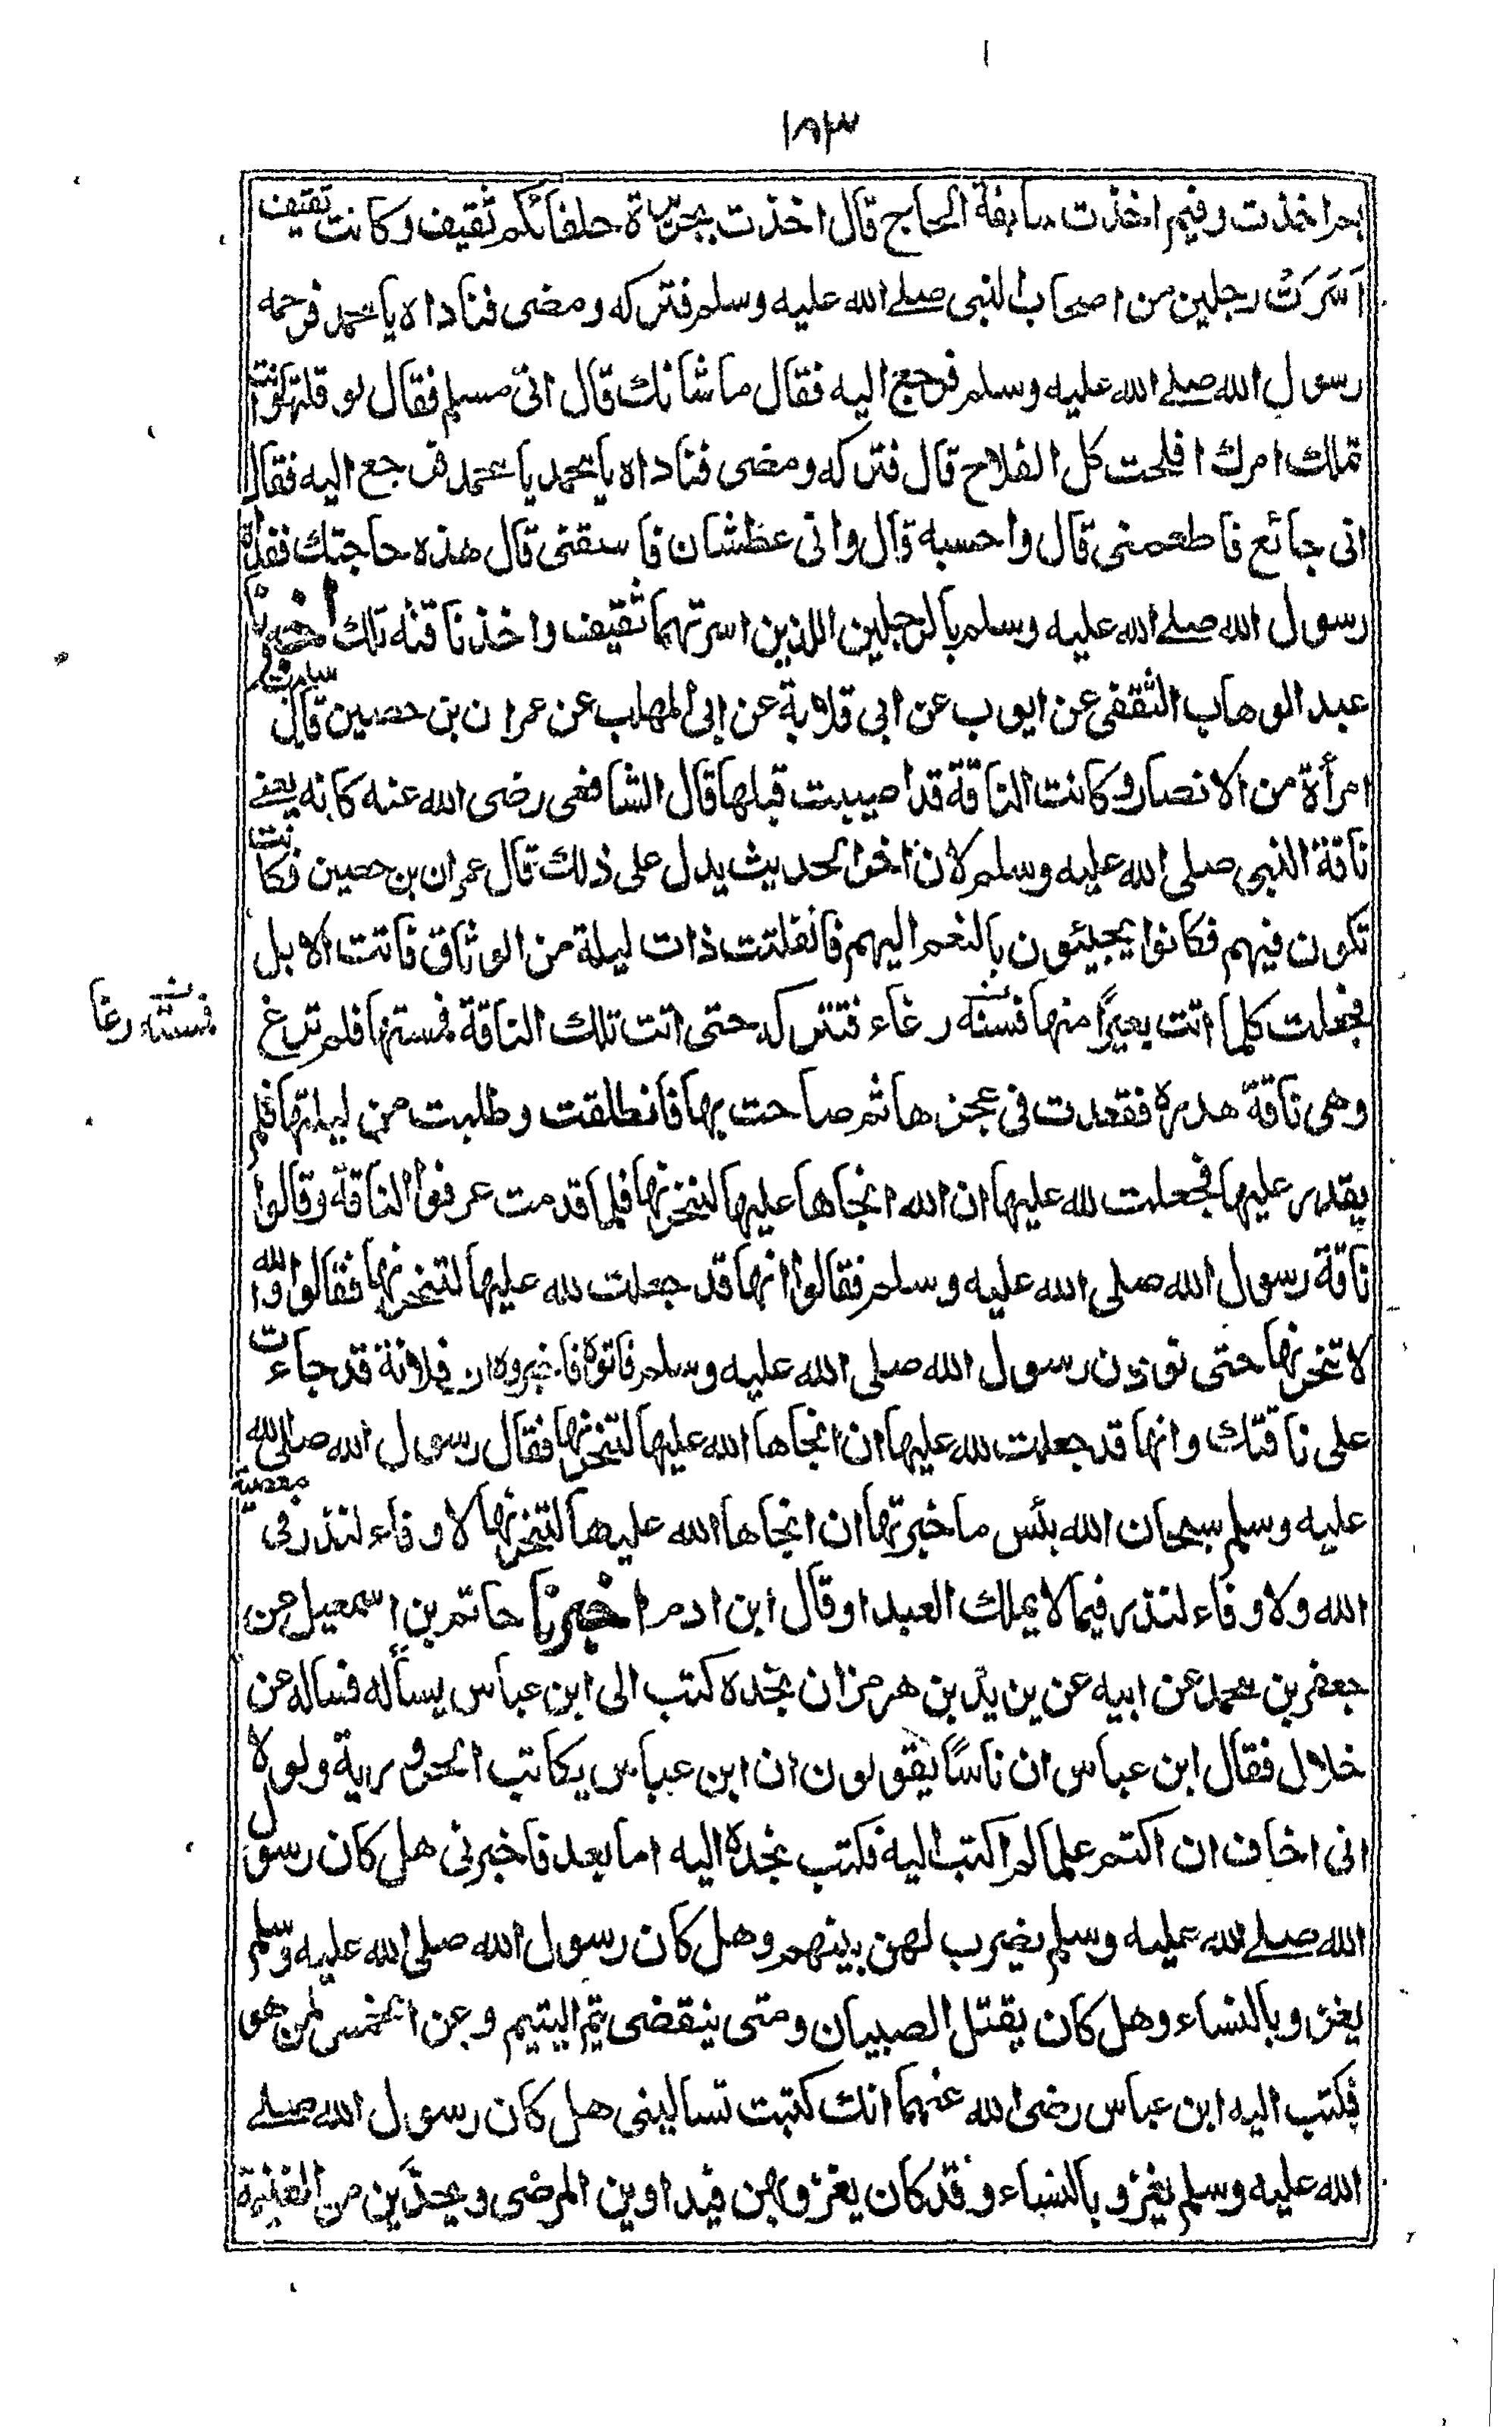 ١٨٣
بم اخذت وفيم اخذت سابقة الحاج قال اخذت بجريرة حلفائكم ثقيف وكانت ثقيف
اسَرَتْ رجلين من اصحاب النبى صلے الله عليه وسلم فتركه ومضى فناداه يا محمد فرحمه
رسول الله صلے الله عليه وسلم فرجع اليه فقال ما شانك قال انى مسلم فقال لو قلتها وانت
تملك امرك افلحت كل الفلاح قال فتركه ومضى فناداه يا محمد يا محمد فرجع اليه فقال
انى جائع فاطعمنى قال واحسبه قال وانى عطشان فاسقنى قال هذه حاجتك ففداه
رسول الله صلے الله عليه وسلم بالرجلين اللذين اسرتهما ثقيف واخذ ناقته تلك اخبرنا
عبد الوهاب الثقفى عن ايوب عن ابى قلابة عن ابى المهلب عن عمران بن حصين قال سبيت
امرأة من الانصار وكانت الناقة قد اصيبت قبلها قال الشافعى رضى الله عنه كانه يعنے
ناقة النبى صلى الله عليه وسلم لان اخر الحديث يدل على ذلك قال عمران بن حصين فكانت
تكون فيهم فكانوا يجيئون بالنعم اليهم فانفلتت ذات ليلة من الوثاق فاتت الابل
فجعلت كلما اتت بعيرًا منها فمسته رغاء فتتركه حتى اتت تلك الناقة فمستها فلم ترغ
فمسته رغا
وهى ناقة هدرة فقعدت فى عجزها ثم صاحت بها فانطلقت وطلبت من ليلتها فلم
يقدر عليها فجعلت لله عليها ان الله انجاها عليها لتنحرنها فلما قدمت عرفوا الناقة وقالوا
ناقة رسول الله صلى الله عليه وسلم فقالوا انها قد جعلت لله عليها لتنحرنها فقالوا والله
لا تنحرنها حتى نوذن رسول الله صلى الله عليه وسلم فاتوه فاخبروه ان فلانة قد جاءت
على ناقتك وانها قد جعلت لله عليها ان انجاها الله عليها لتنحرنها فقال رسول الله صلى الله
عليه وسلم سبحان الله بئس ما خبرتها ان انجاها الله عليها لتنحرنها لا وفاء لنذر فى معصية
الله ولا وفاء لنذر فيما لا يملك العبد او قال ابن ادم اخبرنا حاتم بن اسمعيل عن
جعفر بن محمد عن ابيه عن يزيد بن هرمز ان نجدة كتب الى ابن عباس يسأله فساله عن
خلال فقال ابن عباس ان ناسًا يقولون ان ابن عباس يكاتب الحرورية ولولا
انى اخاف ان اكتم علما لم اكتب اليه فكتب نجدة اليه اما بعد فاخبرنى هل كان رسول
الله صلے الله عليه وسلم يضرب لهن بينهم وهل كان رسول الله صلى الله عليه وسلم
يغزو بالنساء وهل كان يقتل الصبيان ومتى ينقضى يتم اليتيم وعن الخمس لمن هو
فكتب اليه ابن عباس رضى الله عنهما انك كتبت تسالينى هل كان رسول الله صلے
الله عليه وسلم يغزو بالنساء وقد كان يغزو بهن فيداوين المرضى ويحذَين من الغنيمة